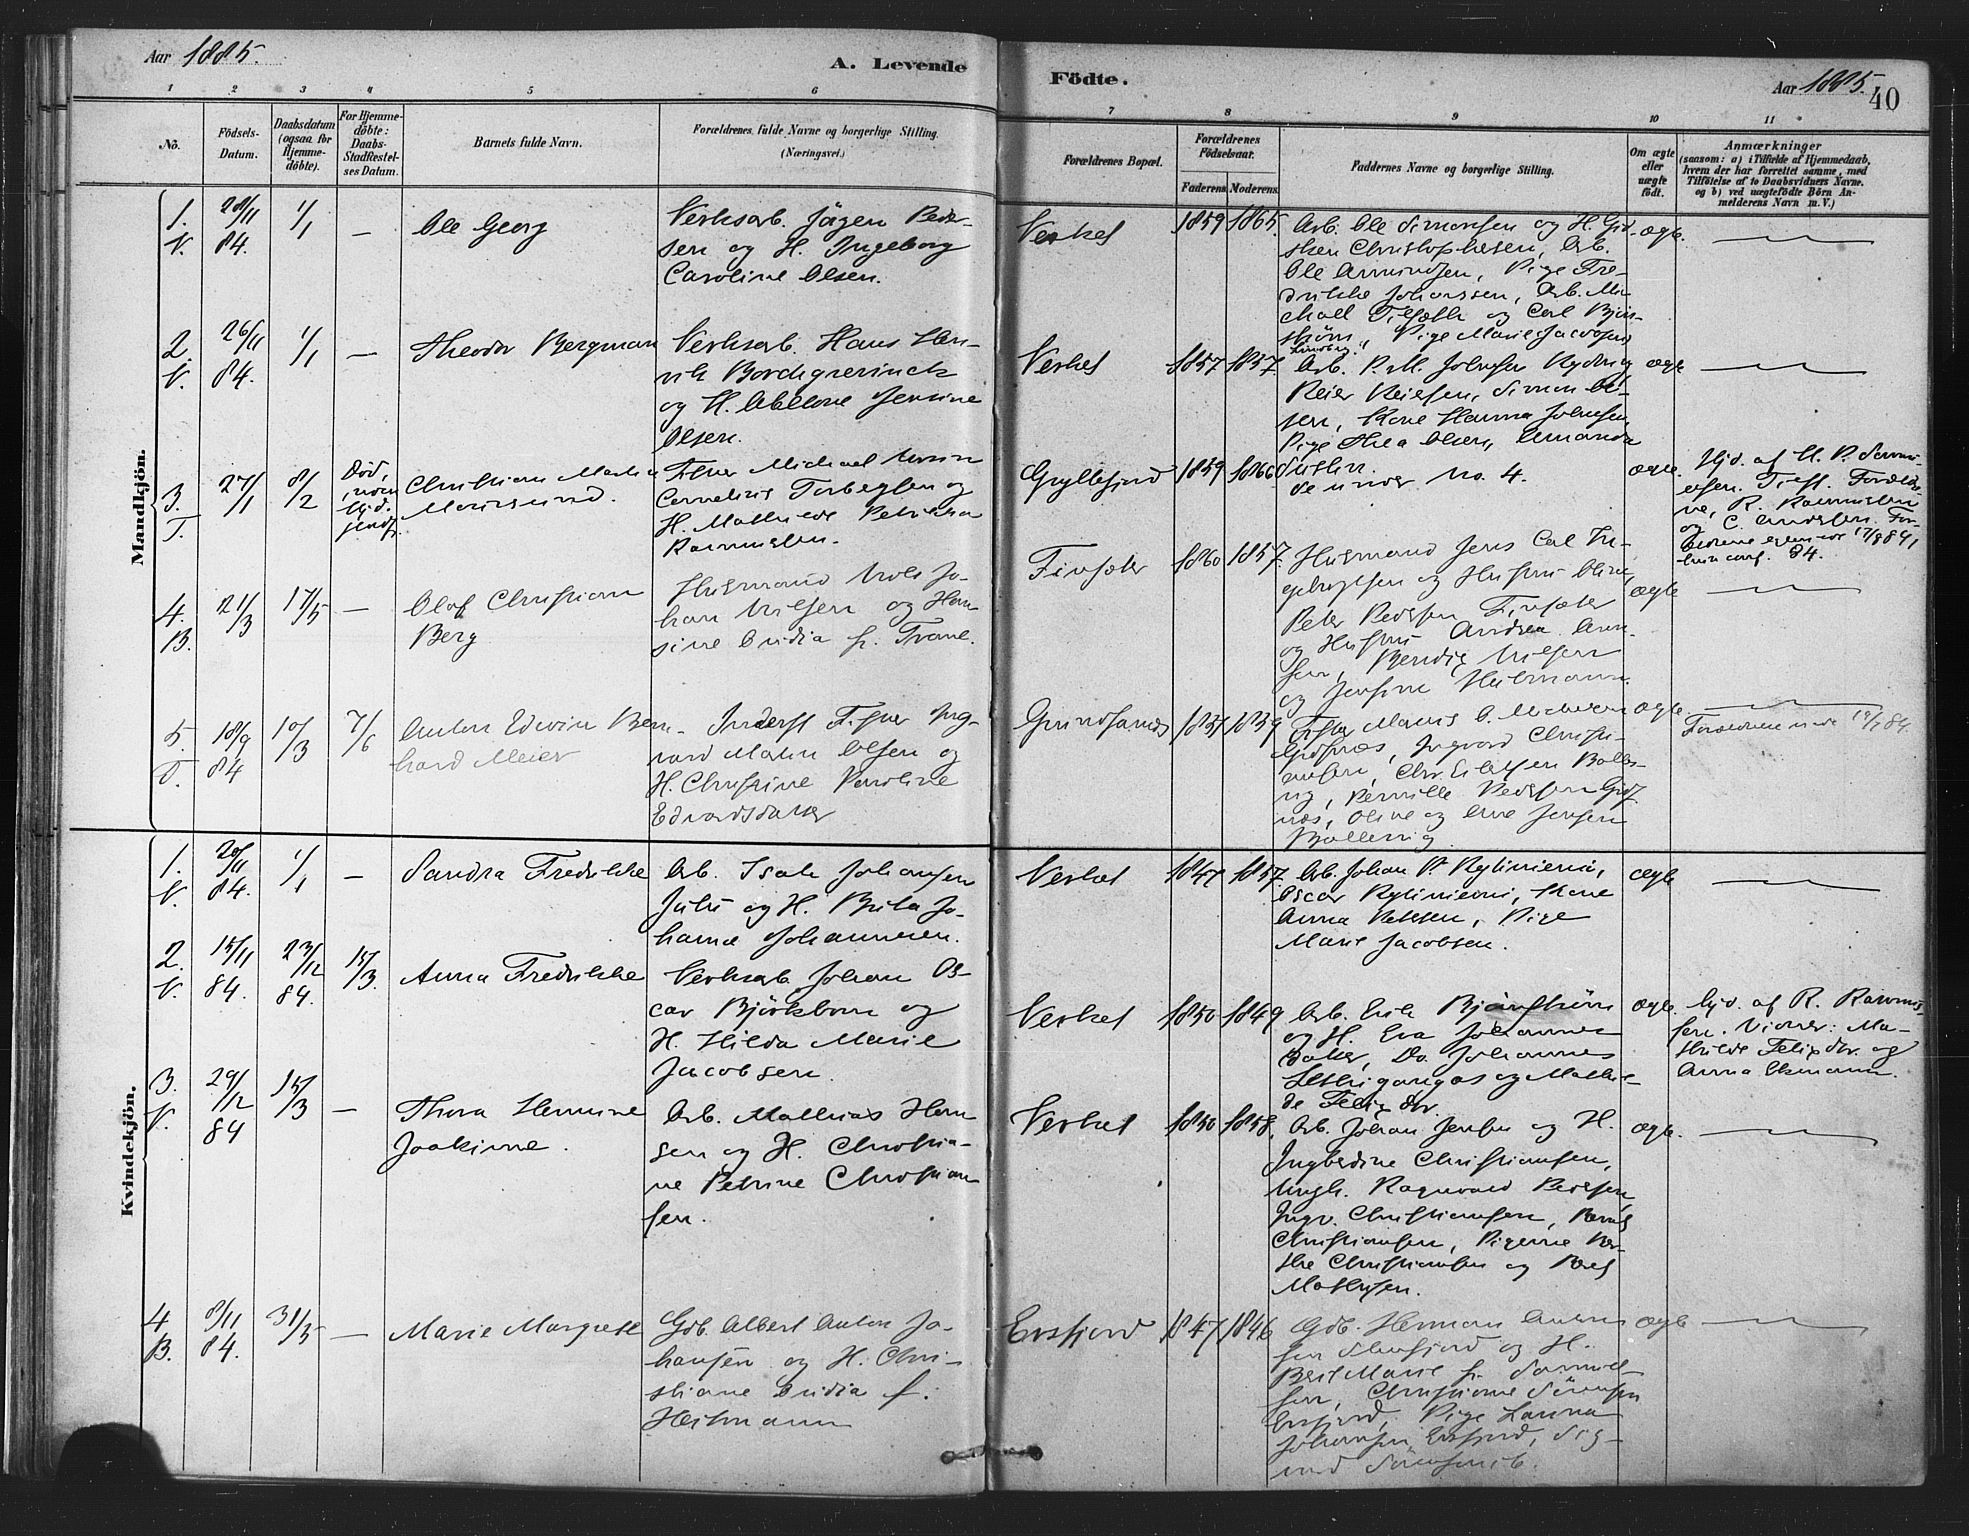 Aar 1885.
A. Levende
Födte.
Aar 1885.
40
1 2 3 4 5 6
7 8 9 10 11
No.
Födsels-
Datum.
Daabsdatum
(ogsaa for
Hjemme-
döbte).
For Hjemme-
döbte:
Daabs-
Stadfæstel-
ses Datum.
Barnets fulde Navn.
Forældrenes fulde Navne og borgerlige Stilling.
(Næringsvei.)
Forældrenes Bopæl.
Forældrenes
Födselsaar.
Faderens. Moderens.
Faddernes Navne og borgerlige Stilling.
Om ægte
eller
uægte
födt.
Anmærkninger
(saasom: a) i Tilfælde af Hjemmedaab,
hvem der har forrettet samme, med
Tilföielse af to Daabsvidners Navne,
og b) ved uægtefödte Börn An-
melderens Navn m. V.)
Mandkjön.
1.
V.
28/11
84.
1/1
—
Ole Georg
Verksarb. Jögen Peder-
sen og H. Ingeborg
Caroline Olsen.
Verket
1859 1865.
Arb. Ole Simonsen og H. Gid-
sken Christophersen, Arb.
Ole Amundsen, Pige Fre-
drikke Johanssen, Arb. Mi-
og Carl Björn-
ström, Pige Marie Jacobsen
ægte.
2.
V.
26/11
84.
1/1
—
Theodor Bergman
Verksarb. Hans Hen-
rik Borchgrevinck
og H. Abelone Jensine
Olsen.
Verket
1857 1857.
Arb. P. M. Johnsen
Reier Reiersen, Simon Ol-
sen, Kone Hanna Johnsen,
Pige Thea Olsen, Amanda
ægte
3.
T.
27/1
8/2
Död,
Christian Martin
Fisker Michael
Cornelius Torbergsen og
H. Mathilde Petrikka
Rasmussen.
Gryllefjord
1859 1866
Se under No. 4.
ægte.
Hjd. af
R. Rasmussen
og C.
4.
B.
21/3
17/5
—
Olaf Christian
Berg
Husmand Nols Jo-
han Nilsen og Han-
sine Lydia f. Trane.
Finsæter
1860 1857.
Husmand Jens Carl In-
gebrigtsen og Hustru Oline,
Peter Pedersen Finsæter
og Hustru Andrea
Bendig Nilsen
og Jensine Heitmann.
ægte
5.
T.
18/9
84
10/3
7/6
Anton Edvin Bern-
hard Meier
Inderst Fisker Ing-
vard Martin Olsen og
H. Christine Karoline
Edvardsdatter
1837 1839
Ingvard Christi-
ansen, Chr.
Pernille Pedersen
Oline og Ane Jensen
ægte.
Kvindekjön.
1.
V.
20/11
84.
1/1
—
Sandra Fredrikke
Arb. Isak Johansen
og H. Brita Jo-
hanna Johannesen.
Verket
1847 1857
Arb. Johan P. Kylinieni,
Oscar Kylinieni, Kone
Anna
Pige
Marie Jacobsen.
ægte
2.
V.
15/11
84.
23/12
84.
15/3.
Anna Fredrikke
Verksarb. Johan Os-
car Björkbom og
H. Hilda Marie
Jacobsen.
Verket
1850 1849
Arb. Erik Björnström
og H. Eva Johannes
datter, Do Johannes
og Mathil-
de Felixdtr.
ægte.
Hjd. af R. Rasmus-
sen. Vidner: Ma-
thilde Felixdtr. og
Anna Ekmann.
3.
V.
29/12
84
15/3
—
Thora Hermine
Joakime.
Arb. Mathias Han-
sen og H. Christia-
ne Petrine Christian-
sen.
Verket
1850 1858.
Arb. Johan Jensen og H.
Ingberdine Christiansen,
Ungk. Ragnvald Pedersen,
Ingv. Christiansen, Bernt
Christiansen, Pigerne
Christiansen og Berit
Mathisen.
ægte.
4
B.
8/11
84.
31/5
—
Marie Margrete
Gdb. Albert Anton Jo-
hansen og H. Chri-
stiane Lydia f.
Heitmann
Ersfjord
1847 1846
Gdb. Herman Ander-
sen
og H.
Berit Marie f. Samuel-
sen, Christiane Sörensen
Ersfjord, Pige Lauina
Johansen Ersfjord, Sig-
ægte